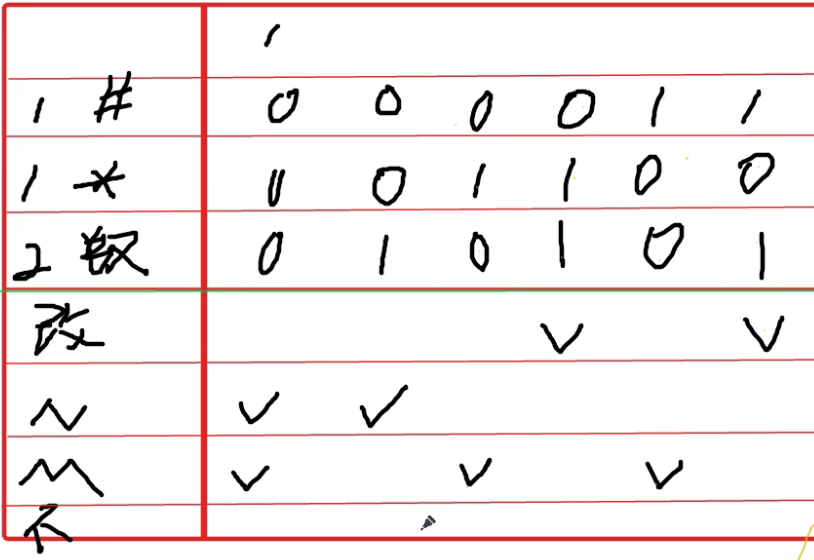 1 # 0 0 0 0 1 1
1 * 0 0 1 1 0 0
2 数 0 1 0 1 0 1
改 ✓ ✓
N ✓ ✓
M ✓ ✓ ✓
不